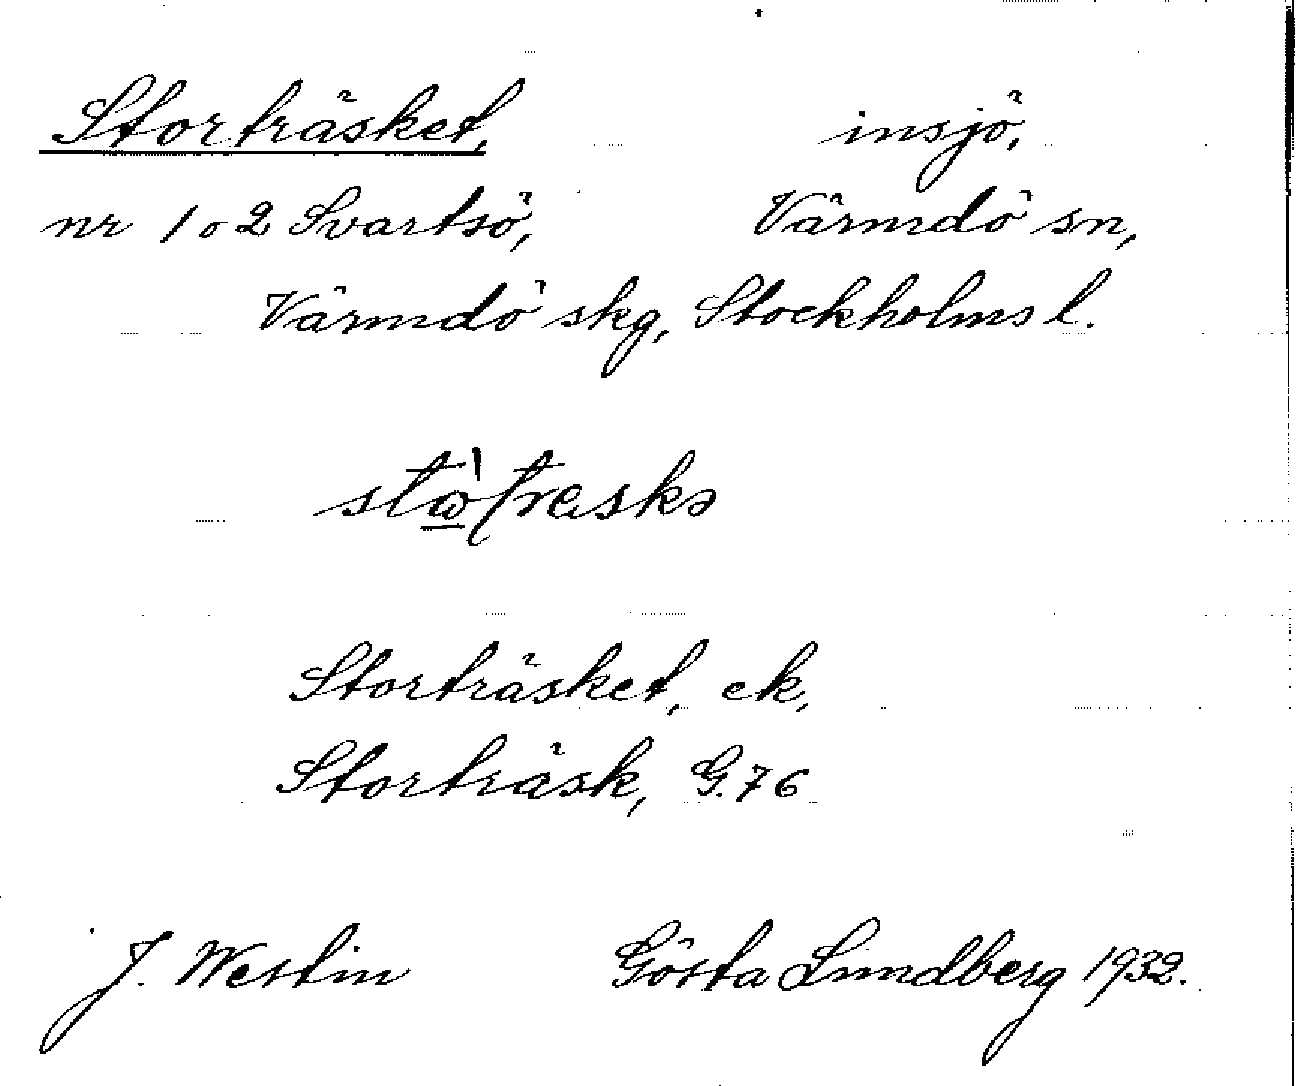 Storträsket, insjö,
nr 1 o 2 Svartsö, Värmdö sn,
Värmdö skg, Stockholms l.
Storträsket, ek,
Storträsk, G.76
J. Westin Gösta Lundberg 1932.